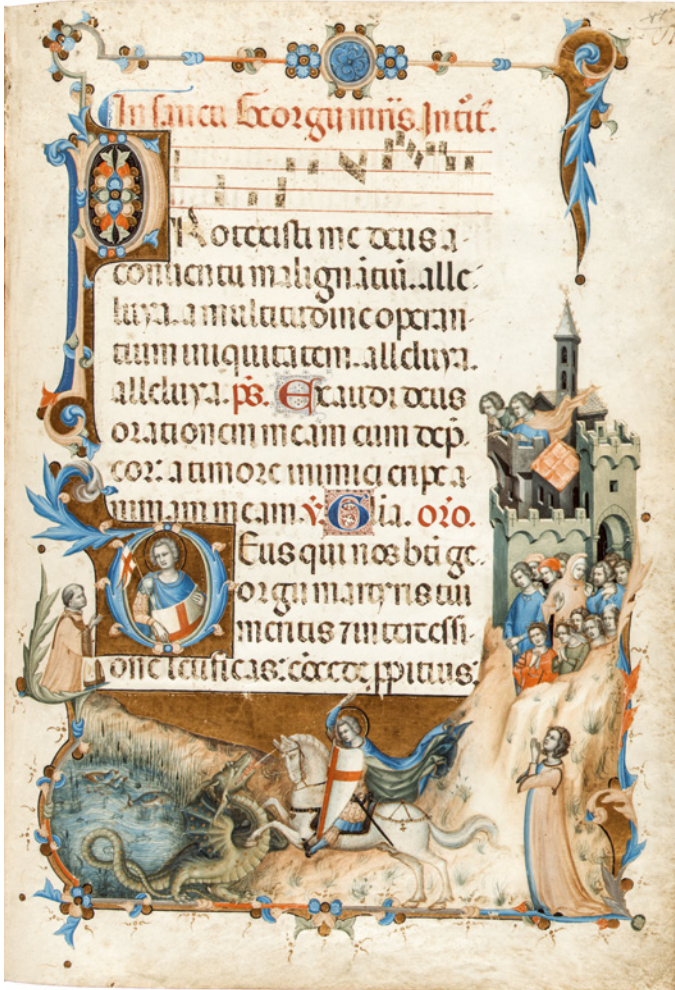 In sancti Georgii mr̄is. Intit̄.
PRotexisti me deus a
conuentu malignātiū. alle
luya. a multitudine operan
tium iniquitatem. alleluya.
alleluya. p̄s. Exaudi deus
orationem meam cum dep̄
cor: a timore inimici eripe a
nimam meam. v̄. Gl̄ia. or̄o.
DEus qui nos bt̄i ge
orgii martyris tui
meritis ⁊ intercessi
one letificas: c̄ocede p̄pitius: